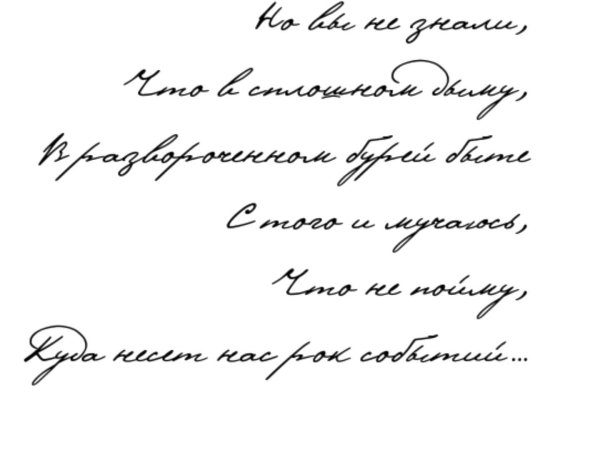 Но вы не знали,
Что в сплошном дыму,
В развороченном бурей быте
С того и мучаюсь,
Что не пойму,
Куда несет нас рок событий...